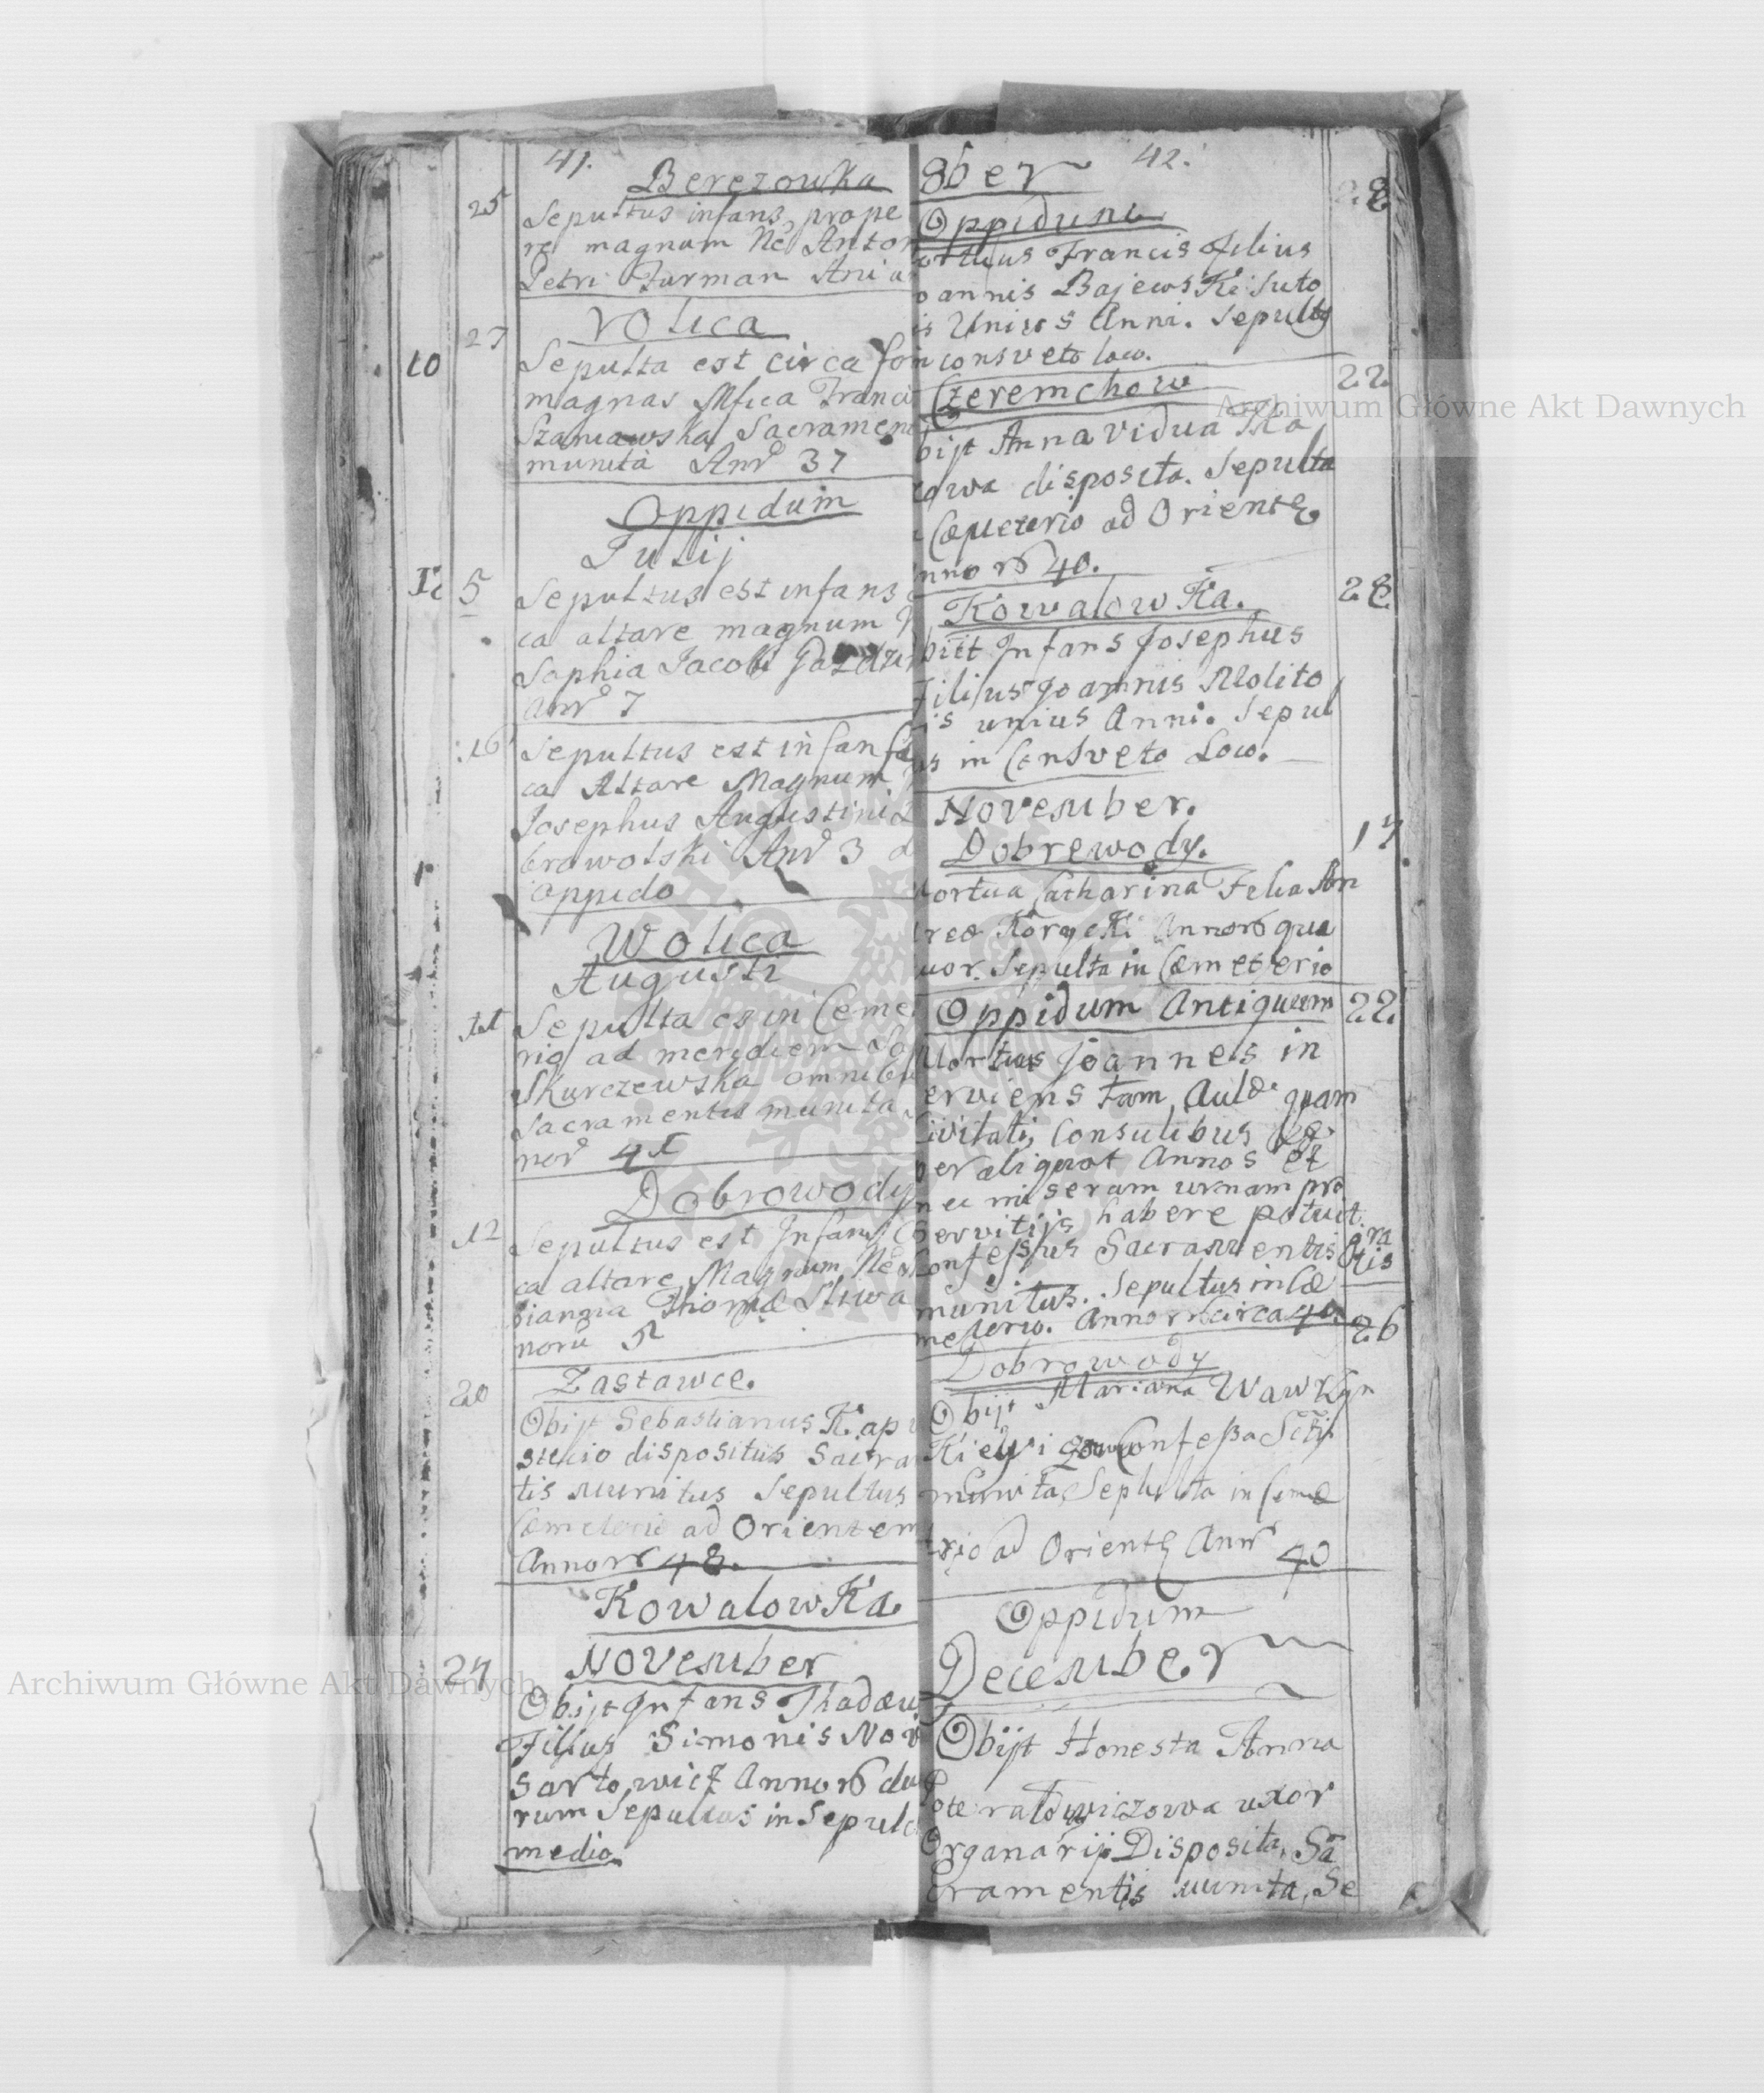 41.
Berezowka
25
Sepultus infans prope
re magnum Ne Anton
Petri Furman Ani
Volica
27
10
Sepulta est circa fon
magnas Mfica Franci
Szaniawska Sacrament
munita Anr 37
Oppidum
Julij
5
Sepultus est infans
ca altare magnum
Sophia Jacobi
Anr 7
16
Sepultus est infans
ca Altare Magnum
Josephus Augustini
browolski Anr 3
oppido
Wolica
Augusti
Sepulta es in Ceme
rio ad meridiem So
Skurczewska omnibu
Sacramentis munita
nor
Dobrowody
12
Sepultus est Infans
ca altare Magnum Neo
bianna Thomæ Sliwa
noru 5
Zastawce.
20
Obijt Sebastianus Kap
sticio dispositus Sacra
tis munitus Sepultus
Cæmeterio ad Orientem
Annor 48.
Kowalowka
November
24
Obijt Infans Thadæu
Filius Simonis Nov
sartowicz Annor du
rum Sepultus in Sepulc
medio.
42.
8ber
28
Oppidum
ortuus Francis Filius
oannis Bajewski Suto
is Unius Anni. Sepultg
in consveto loco.
Czeremchow
22
bijt Anna vidua
cowa disposita. Sepulta
Cæmeterio ad Oriente
nnor 40.
Kowalowka.
28
biit Infans Josephus
Filius Joannis Molito
is unius Anni. Sepul
us in Consveto Loco.
November.
Dobrewody.
17
ortua Catharina Felia An
reæ Koryckti Annor qua
uor. Sepulta in Cæmeterio
Oppidum Antiquum
22
Mortuus Joannes in
erviens tam Aulæ quam
ivitatis Consulibus
per aliquot Annos et
nec miseram urnam pro
servitijs habere potuit
gra
tis
Confessus Sacramentis
munitus. Sepultus in Cæ
meterio. Annor circa 40.
26
Dobrowody
Obijt Mariana Wawrzyn
Confeßa Sctis
munita, Sepulta in Cemæ
trio ad Oriente Anr 40
Oppidum
December
Obijt Honesta Anna
Poteratowiczowa uxor
Organarij Disposita, Sa
cramentis munita, Se
Archiwum Główne Akt Dawnych
Archiwum Główne Akt Dawnych